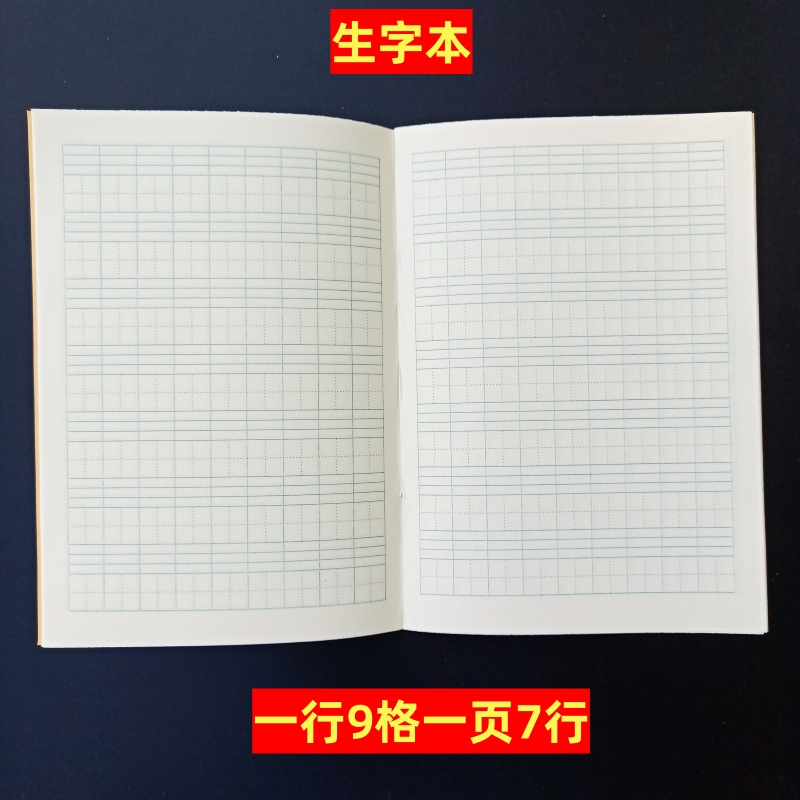 生字本
一行9格一页7行